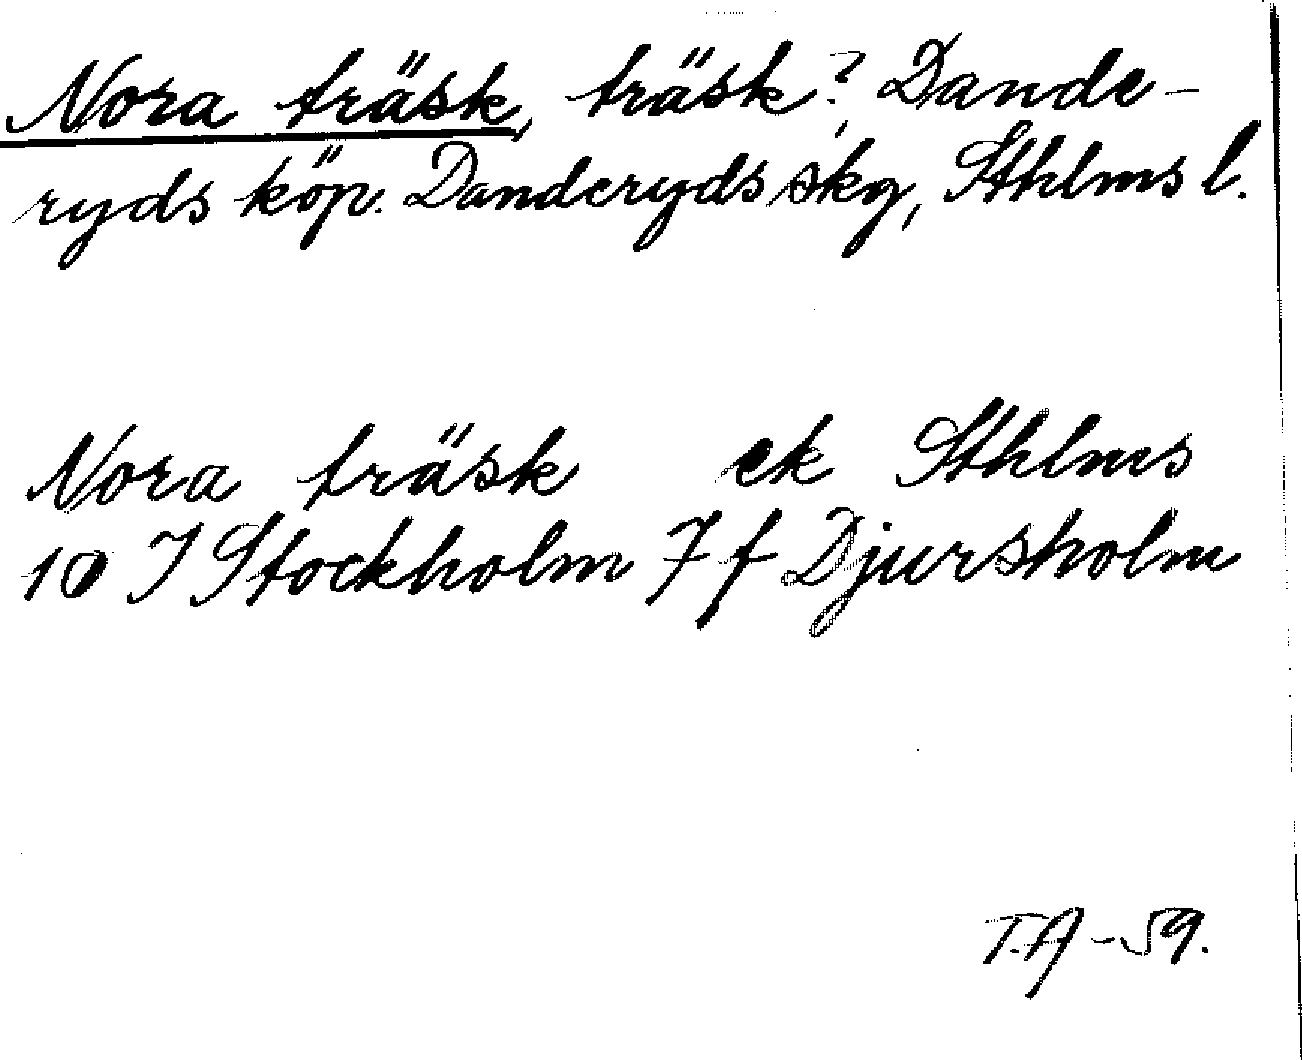 Nora träsk, träsk?, Dande-
ryds köp. Danderyds skg, Sthlms l.
Nora träsk ek Sthlms
10 I Stockholm 7 f Djursholm
T.A -59.